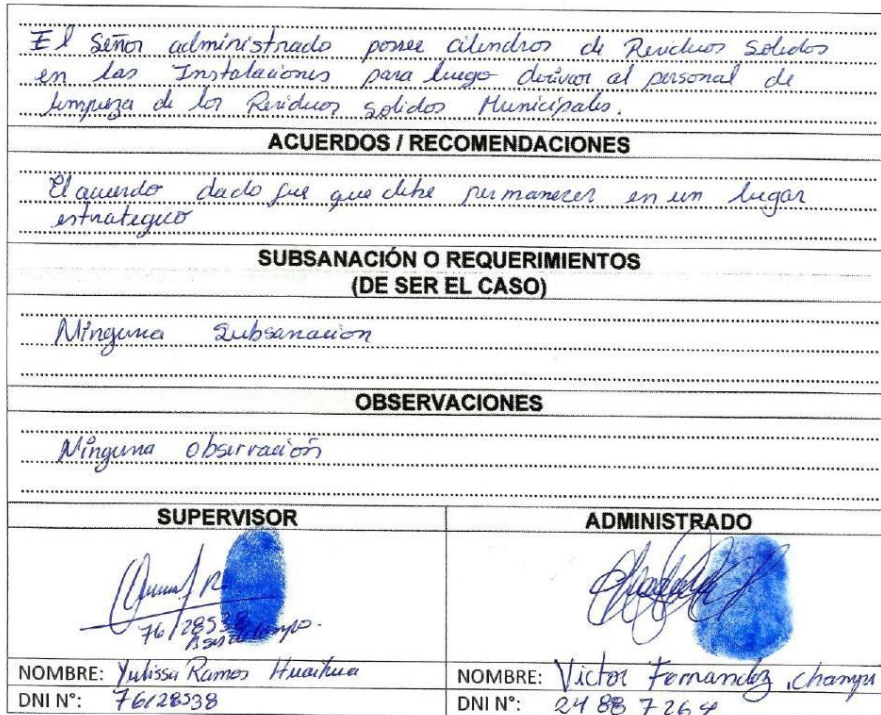 El Señor administrado posee cilindros de Residuos Solidos
en las Instalaciones para luego derivar al personal de
limpieza de los Residuos solidos Municipales.
ACUERDOS / RECOMENDACIONES
El acuerdo dado fue que debe permanecer en un lugar
estrateguco
SUBSANACIÓN O REQUERIMIENTOS
(DE SER EL CASO)
Ninguna Subsanacion
OBSERVACIONES
Ninguna observación
SUPERVISOR
ADMINISTRADO
76128538
NOMBRE: Yulissa Ramos Huaihua
NOMBRE: Victor Fernandez
DNI N°: 76128538
DNI N°: 24887264